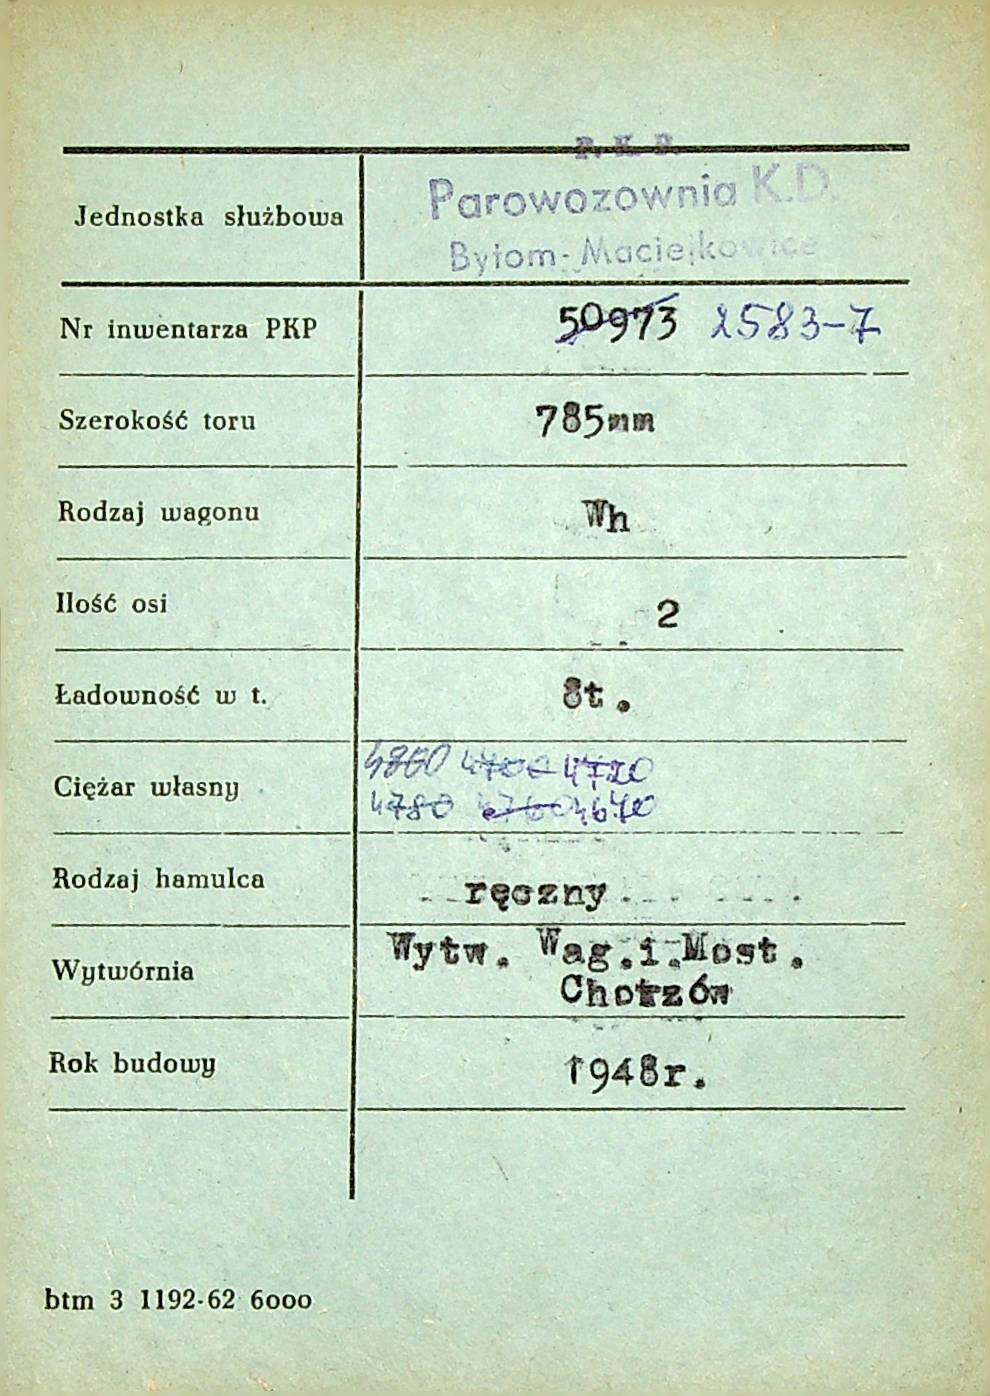 P. K. P.
Parowozownia K.D.
Jednostka służbowa
Bytom-Maciejkowice
Nr inwentarza PKP 50973 2583-7
Szerokość toru 785mm
Rodzaj wagonu Wh
Ilość osi 2
Ładowność w t. 8t.
4860 4700 4720
Ciężar własny
4780 4760 4640
Rodzaj hamulca ręczny
Wytw. Wag.i.Most.
Wytwórnia
Chorzów
Rok budowy 1948r.
btm 3 1192-62 6000